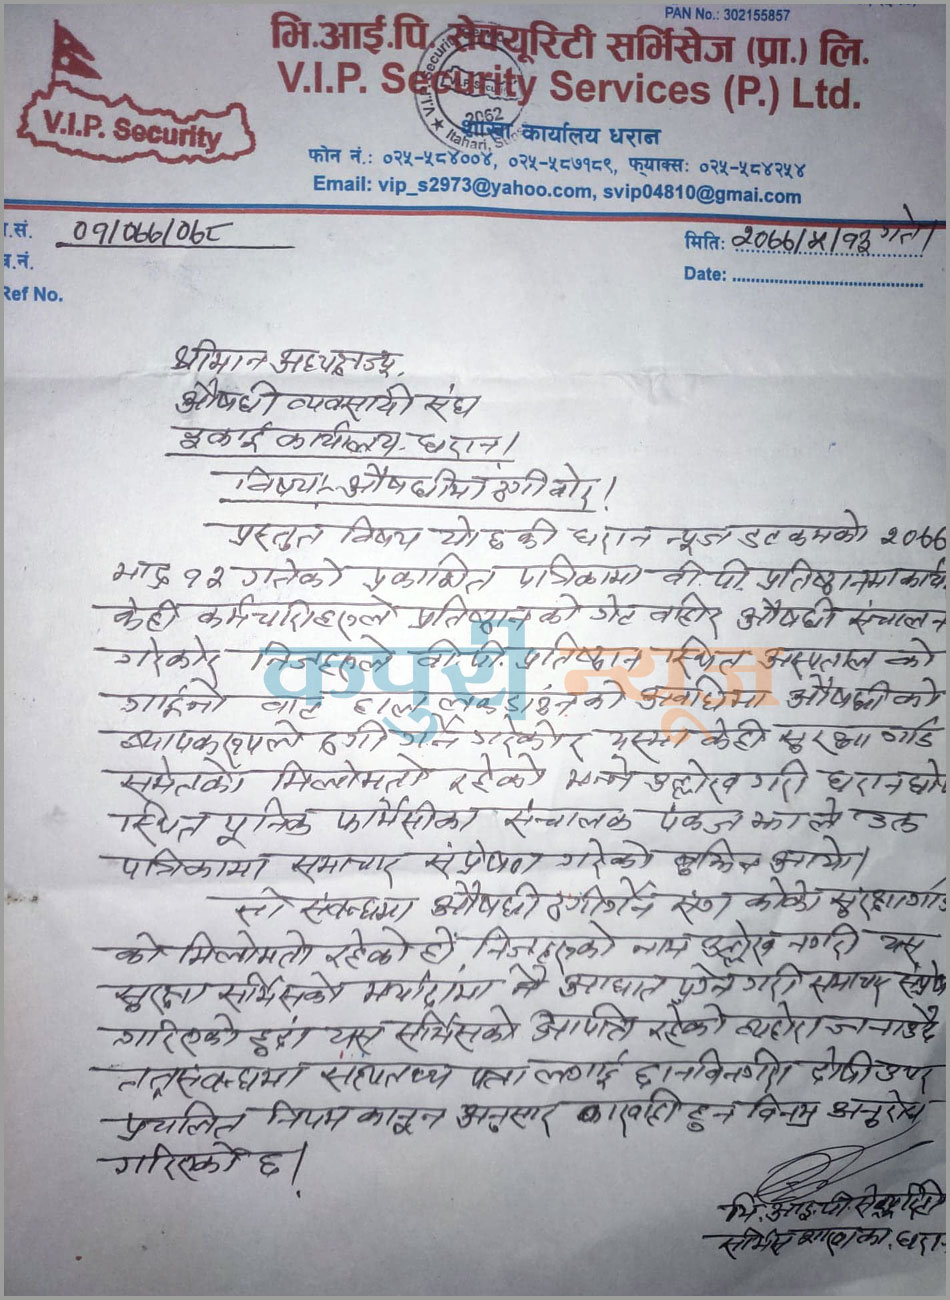 PAN No.: 302155857
भि.आई.पि. सेक्यूरिटी सर्भिसेज (प्रा.) लि.
V.I.P. Security Services (P.) Ltd.
V.I.P. Security
2062
Itahari, Sunsari
शाखा कार्यालय धरान
फोन नं.: ०२५-५८४००४, ०२५-५८७१८९, फ्याक्सः ०२५-५८४२५४
Email: vip_s2973@yahoo.com, svip04810@gmai.com
.सं. ०१/०७७/०७८
मितिः २०७७/५/१३ गते।
च.नं.
Date:
Ref No.
श्रीमान अध्यक्षज्यू,
औषधी व्यवसायी संघ
इकाई कार्यालय धरान।
विषयः- औषधीमा ठगी बारे।
प्रस्तुत विषय यो छ की धरान न्यूज डट कमको २०७७
भाद्र १२ गतेको प्रकाशित पत्रिकामा वी.पी. प्रतिष्ठानमा कार्य
केही कर्मचारीहरुले प्रतिष्ठानको गेट वाहीर औषधी संचालन
गरेको र निजहरुले वी.पी. प्रतिष्ठान स्थित अस्पताल को
गाईनो वाट हाल लकडाउनको अवधिमा औषधीको
व्यापकरुपले ठगी गर्ने गरेको र यसमा केही सुरक्षा गार्ड
समेतको मिलोमतो रहेको भन्ने उल्लेख गरी धरान घोप
स्थित फार्मेसीका संचालक पंकज झा ले उक्त
पत्रिकामा समाचार संप्रेषण गरेको बुझिन आयो।
सो संवन्धमा औषधी ठगी गर्ने संग को को सुरक्षागार्ड
को मिलोमतो रहेको हो, निजहरुको नाम उल्लेख नगरी यस
सुरक्षा सर्भिसको मर्यादामा नै आघात पुग्ने गरी समाचार संप्रेष
गरिएको हुंदा यस सर्भिसको आपत्ति रहेको व्यहोरा जनाउंदै
तत् संवन्धमा सत्यतथ्य पत्ता लगाई छानविन गरी दोषी उपर
प्रचलित नियम कानून अनुसार कारवाही हुन विनम्र अनुरोध
गरिएको छ।
भि.आई.पी. सेक्यूरिटी
सर्भिस शाखा का. धरा
कपुरी न्यूज